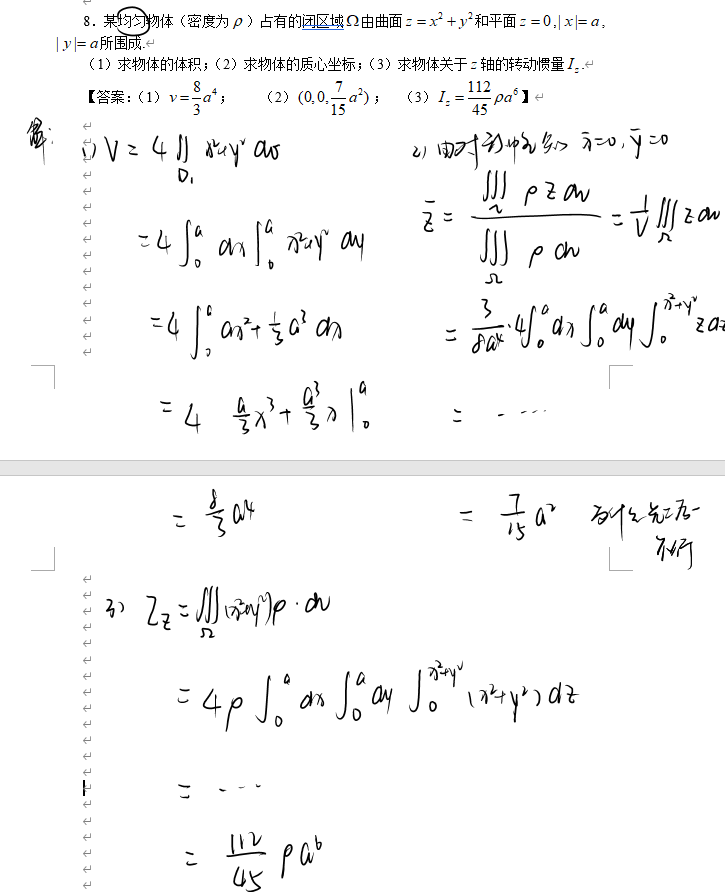 8．某均匀物体（密度为 ρ ）占有的闭区域 Ω 由曲面 z = x² + y² 和平面 z = 0, | x |= a ,
| y |= a 所围成.
（1）求物体的体积；（2）求物体的质心坐标；（3）求物体关于 z 轴的转动惯量 I_z .
【答案：（1） v = 8/3 a⁴ ； （2） (0,0, 7/15 a²) ； （3） I_z = 112/45 ρa⁶ 】
解：
1) V = 4 ∬_{D₁} x²+y² dσ
= 4 ∫₀ᵃ dx ∫₀ᵃ x²+y² dy
= 4 ∫₀ᵃ ax² + 1/3 a³ dx
= 4 a/3 x³ + a³/3 x |₀ᵃ
= 8/3 a⁴
2) 由对称性知 x̄=0, ȳ=0
z̄ = ∭_Ω ρ z dv / ∭_Ω ρ dv = 1/V ∭_Ω z dv
= 3/8a⁴ · 4 ∫₀ᵃ dx ∫₀ᵃ dy ∫₀^{x²+y²} z dz
= ....
= 7/15 a²
为什么先二后一
不行
3) I_z = ∭_Ω (x²+y²) ρ · dv
= 4ρ ∫₀ᵃ dx ∫₀ᵃ dy ∫₀^{x²+y²} (x²+y²) dz
= ...
= 112/45 ρ a⁶